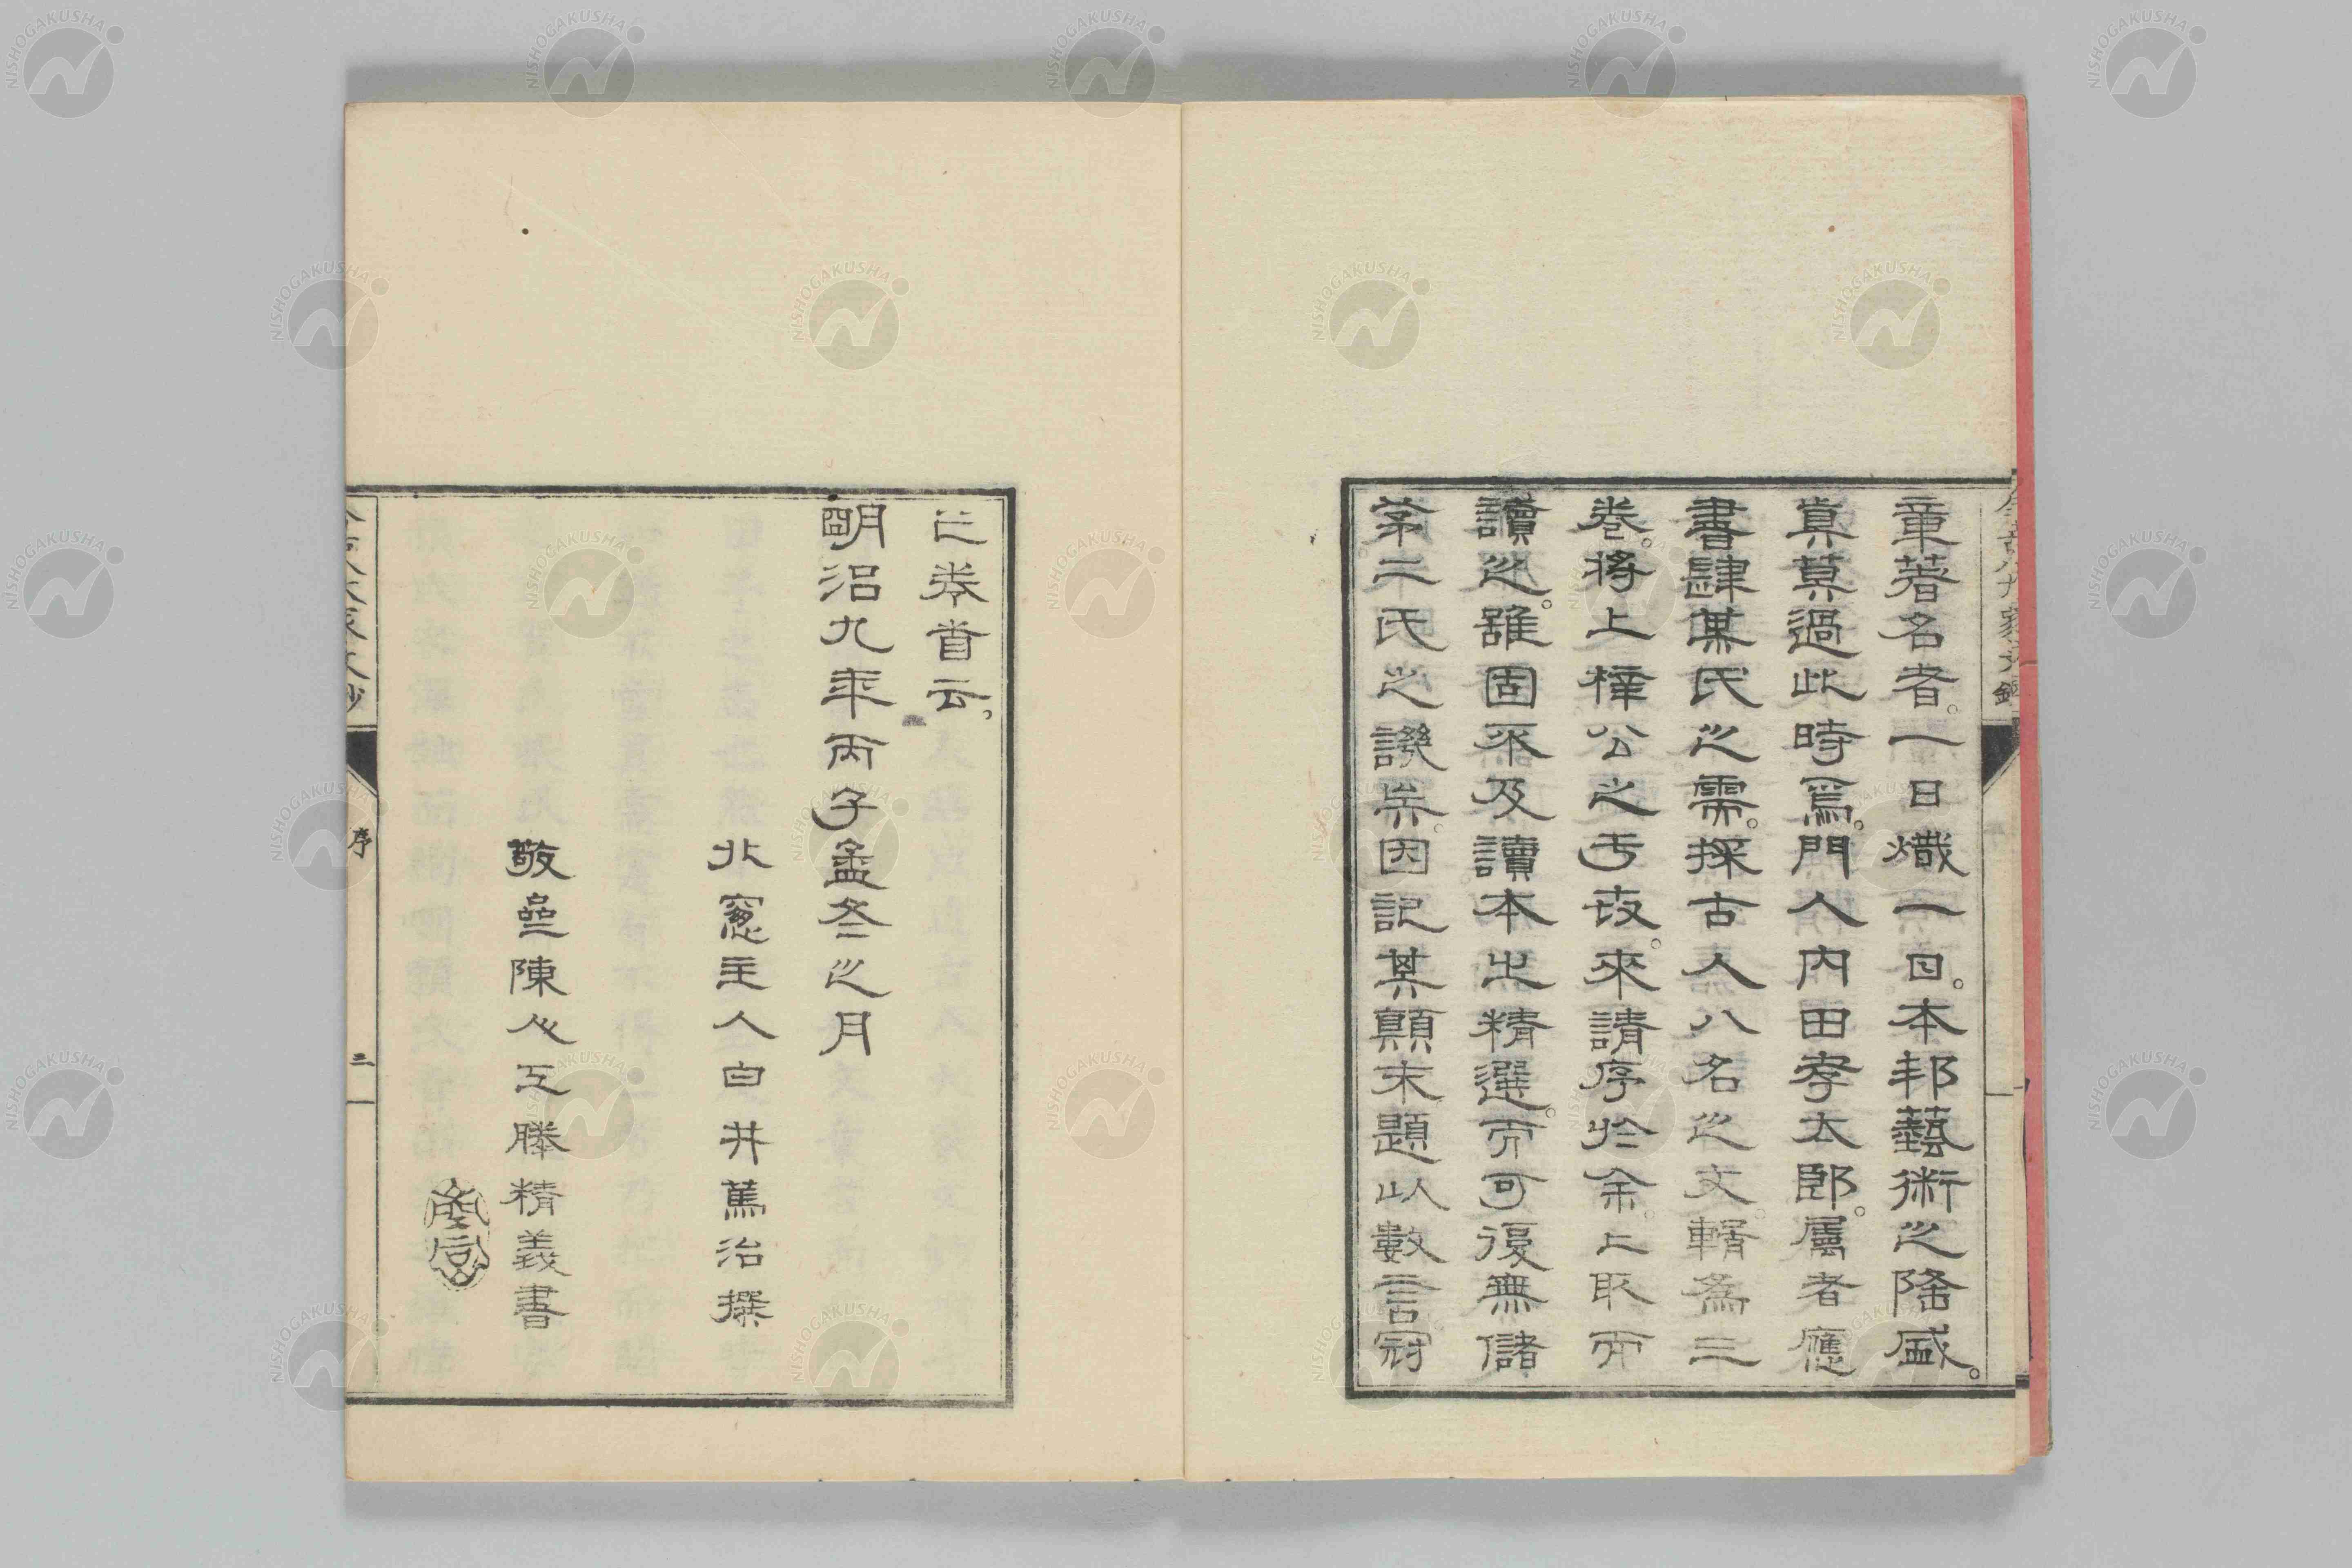 章著名者。一日熾一日。本邦藝術之隆盛。
眞莫過此時焉。門人内田孝太郎。属者應
書肆某氏之需。採古人八名之文輯爲三
卷。將上梓公之于世。來請序於余。取而
讀之。雖固不及讀本之精選。而可復無儲
茅二氏之譏矣。因記其顛末題以數言冠
卷首云。
明治九年丙子孟冬之月
北窻主人白井篤治撰
敬陳人工藤精義書
序
三
NISHOGAKUSHA